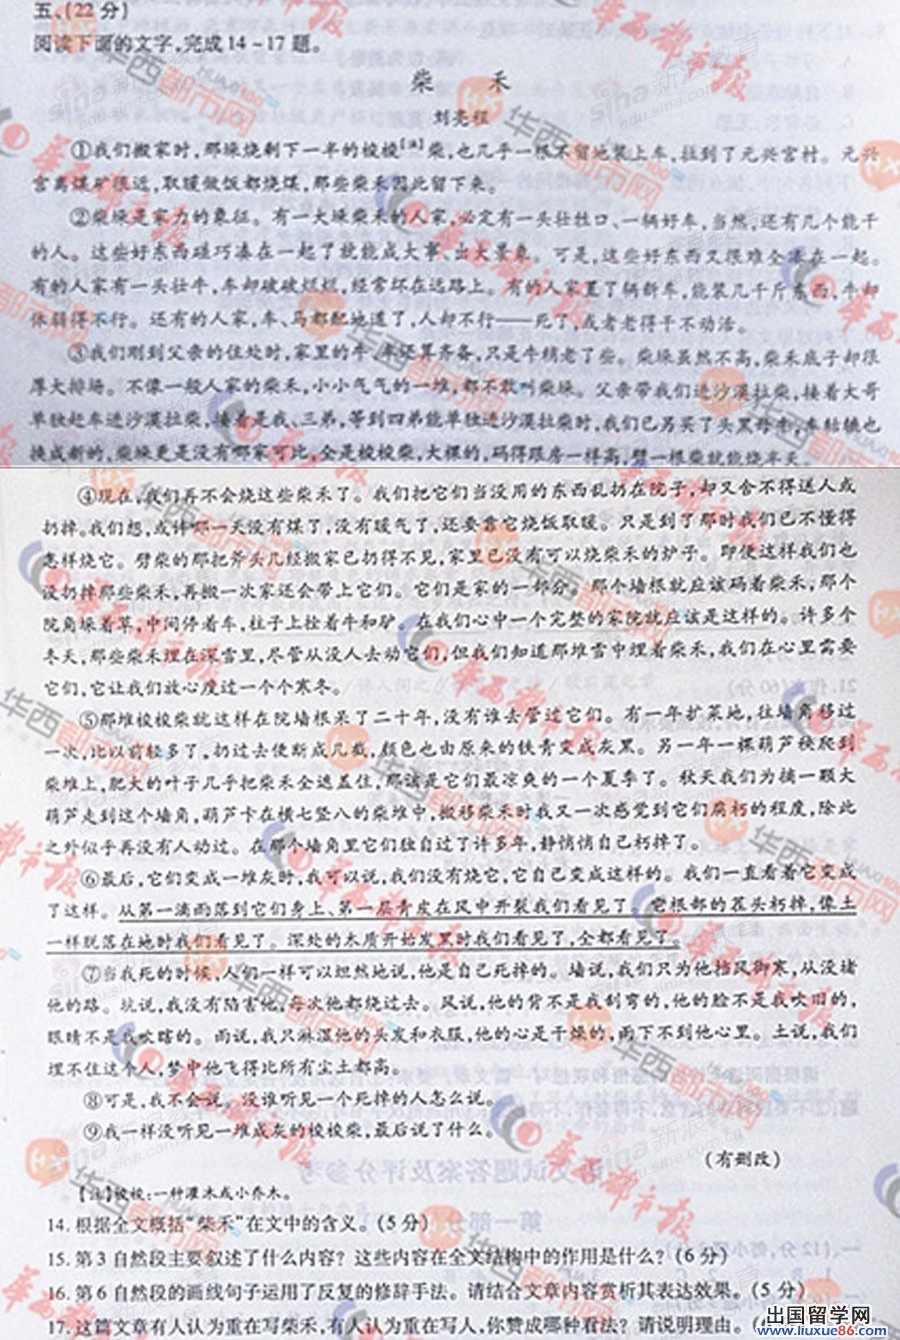 五、(22分)
阅读下面的文字,完成14~17题。
柴 禾
刘亮程
①我们搬家时,那垛烧剩下一半的梭梭[注]柴,也几乎一根不留地装上车,拉到了元兴宫村。元兴
宫离煤矿很近,取暖做饭都烧煤,那些柴禾因此留下来。
②柴垛是家力的象征。有一大垛柴禾的人家,必定有一头壮牲口、一辆好车,当然,还有几个能干
的人。这些好东西碰巧凑在一起了就能成大事、出大景象。可是,这些好东西又很难全凑在一起。
有的人家有一头壮牛,车却破破烂烂,经常坏在远路上。有的人家置了辆新车,能装几千斤东西,牛却
体弱得不行。还有的人家,车、马都配地道了,人却不行——死了,或者老得干不动活。
③我们刚到父亲的住处时,家里的牛、车还算齐备,只是牛稍老了些。柴垛虽然不高,柴禾底子却很
厚大排场。不像一般人家的柴禾,小小气气的一堆,都不敢叫柴垛。父亲带我们进沙漠拉柴,接着大哥
单独赶车进沙漠拉柴,接着是我、三弟,等到四弟能单独进沙漠拉柴时,我们已另买了头黑母牛,车轱辘也
换成新的,柴垛更是没有哪家可比,全是梭梭柴,大棵的,码得跟房一样高,劈一根柴就能烧半天。
④现在,我们再不会烧这些柴禾了。我们把它们当没用的东西乱扔在院子,却又舍不得送人或
扔掉。我们想,或许哪一天没有煤了,没有暖气了,还要靠它烧饭取暖。只是到了那时我们已不懂得
怎样烧它。劈柴的那把斧头几经搬家已扔得不见,家里已没有可以烧柴禾的炉子。即便这样我们也
没扔掉那些柴禾,再搬一次家还会带上它们。它们是家的一部分。那个墙根就应该码着柴禾,那个
院角垛着草,中间停着车,柱子上拴着牛和驴。在我们心中一个完整的家院就应该是这样的。许多个
冬天,那些柴禾埋在深雪里,尽管从没人去动它们,但我们知道那堆雪中埋着柴禾,我们在心里需要
它们,它让我们放心度过一个个寒冬。
⑤那堆梭梭柴就这样在院墙根呆了二十年,没有谁去管过它们。有一年扩菜地,往墙角移过
一次,比以前轻多了,扔过去便断成几截,颜色也由原来的铁青变成灰黑。另一年一棵葫芦秧爬到
柴堆上,肥大的叶子几乎把柴禾全遮盖住,那该是它们最凉爽的一个夏季了。秋天我们为摘一颗大
葫芦走到这个墙角,葫芦卡在横七竖八的柴堆中,搬移柴禾时我又一次感觉到它们腐朽的程度,除此
之外似乎再没有人动过。在那个墙角里它们独自过了许多年,静悄悄自己朽掉了。
⑥最后,它们变成一堆灰时,我可以说,我们没有烧它,它自己变成这样的。我们一直看着它变成
了这样。从第一滴雨落到它们身上、第一层青皮在风中开裂我们看见了。它根部的茬头朽掉,像土
一样脱落在地时我们看见了。深处的木质开始发黑时我们看见了,全都看见了。
⑦当我死的时候,人们一样可以坦然地说,他是自己死掉的。墙说,我们只为他挡风御寒,从没堵
他的路。坑说,我没有陷害他,每次他都绕过去。风说,他的背不是我刮弯的,他的脸不是我吹旧的,
眼睛不是我吹瞎的。雨说,我只淋湿他的头发和衣服,他的心是干燥的,雨下不到他心里。土说,我们
埋不住这个人,梦中他飞得比所有尘土都高。
⑧可是,我不会说。没谁听见一个死掉的人怎么说。
⑨我一样没听见一堆成灰的梭梭柴,最后说了什么。
(有删改)
[注]梭梭:一种灌木或小乔木。
14.根据全文概括“柴禾”在文中的含义。(5分)
15.第3自然段主要叙述了什么内容?这些内容在全文结构中的作用是什么?(6分)
16.第6自然段的画线句子运用了反复的修辞手法。请结合文章内容赏析其表达效果。(5分)
17.这篇文章有人认为重在写柴禾,有人认为重在写人,你赞成哪种看法?请说明理由。
出国留学网
www.liuxue86.com